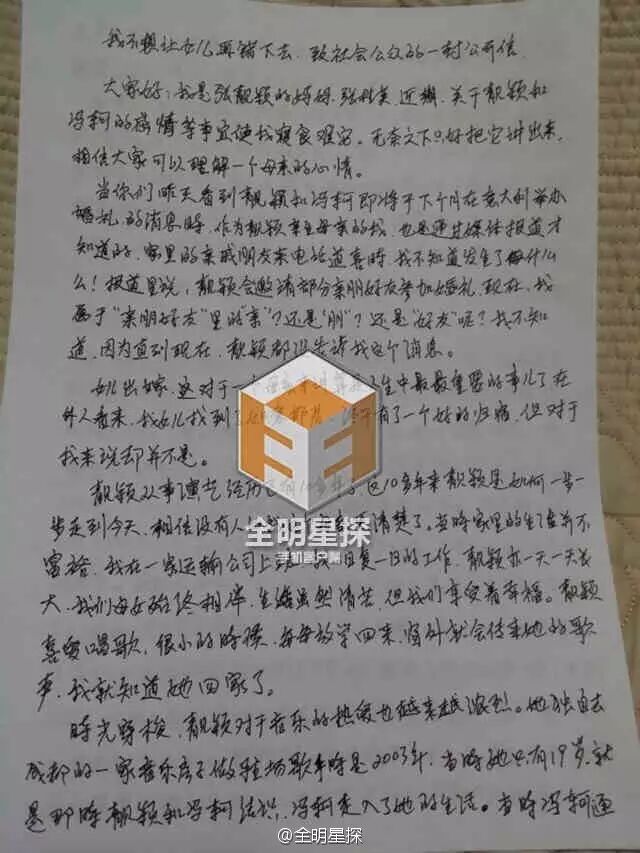 我不想让女儿再错下去,致社会公众的一封公开信
大家好,我是张靓颖的妈妈,张桂英,近期,关于靓颖和
冯轲的婚情等事宜使我寝食难安。无奈之下只好把它讲出来,
相信大家可以理解一个母亲的心情。
当你们昨天看到靓颖和冯轲即将于下个月在意大利举办
婚礼的消息时,作为靓颖亲生母亲的我,也是通过媒体报道才
知道的,家里的亲戚朋友来电话道喜时,我不知道发生了什么
么!报道里说,靓颖会邀请部分亲朋好友参加婚礼,现在,我
属于"亲朋好友"里的"亲"?还是"朋"?还是"好友"呢?我不知
道,因为直到现在,靓颖都没告诉我这个消息。
女儿出嫁,这对于一个母亲来说算是一生中最最重要的事儿了在
外人看来,我女儿找到了,终于有了一个好的归宿,但对于
我来说却并不是。
靓颖从事演艺经历已有10多年,这10多年来靓颖是如何一步一
步走到今天,相信没有人比我清楚了。当时家里的生活并不
富裕,我在一家运输公司上班,日复一日的工作,靓颖亦一天一天长
大,我们母女始终相伴,生活虽然清苦,但我们享受着幸福。靓颖
喜爱唱歌,很小的时候,每每放学回来,窗外就会传来她的歌
声,我就知道她回家了。
时光穿梭,靓颖对于音乐的热爱也越来越浓烈。她独自去
成都的一家音乐房子做驻场歌手时是2003年,当时她只有19岁,就
是那时靓颖和冯轲结识,冯轲走入了她的生活。当时冯轲通
全明星探
手机客户端
@全明星探